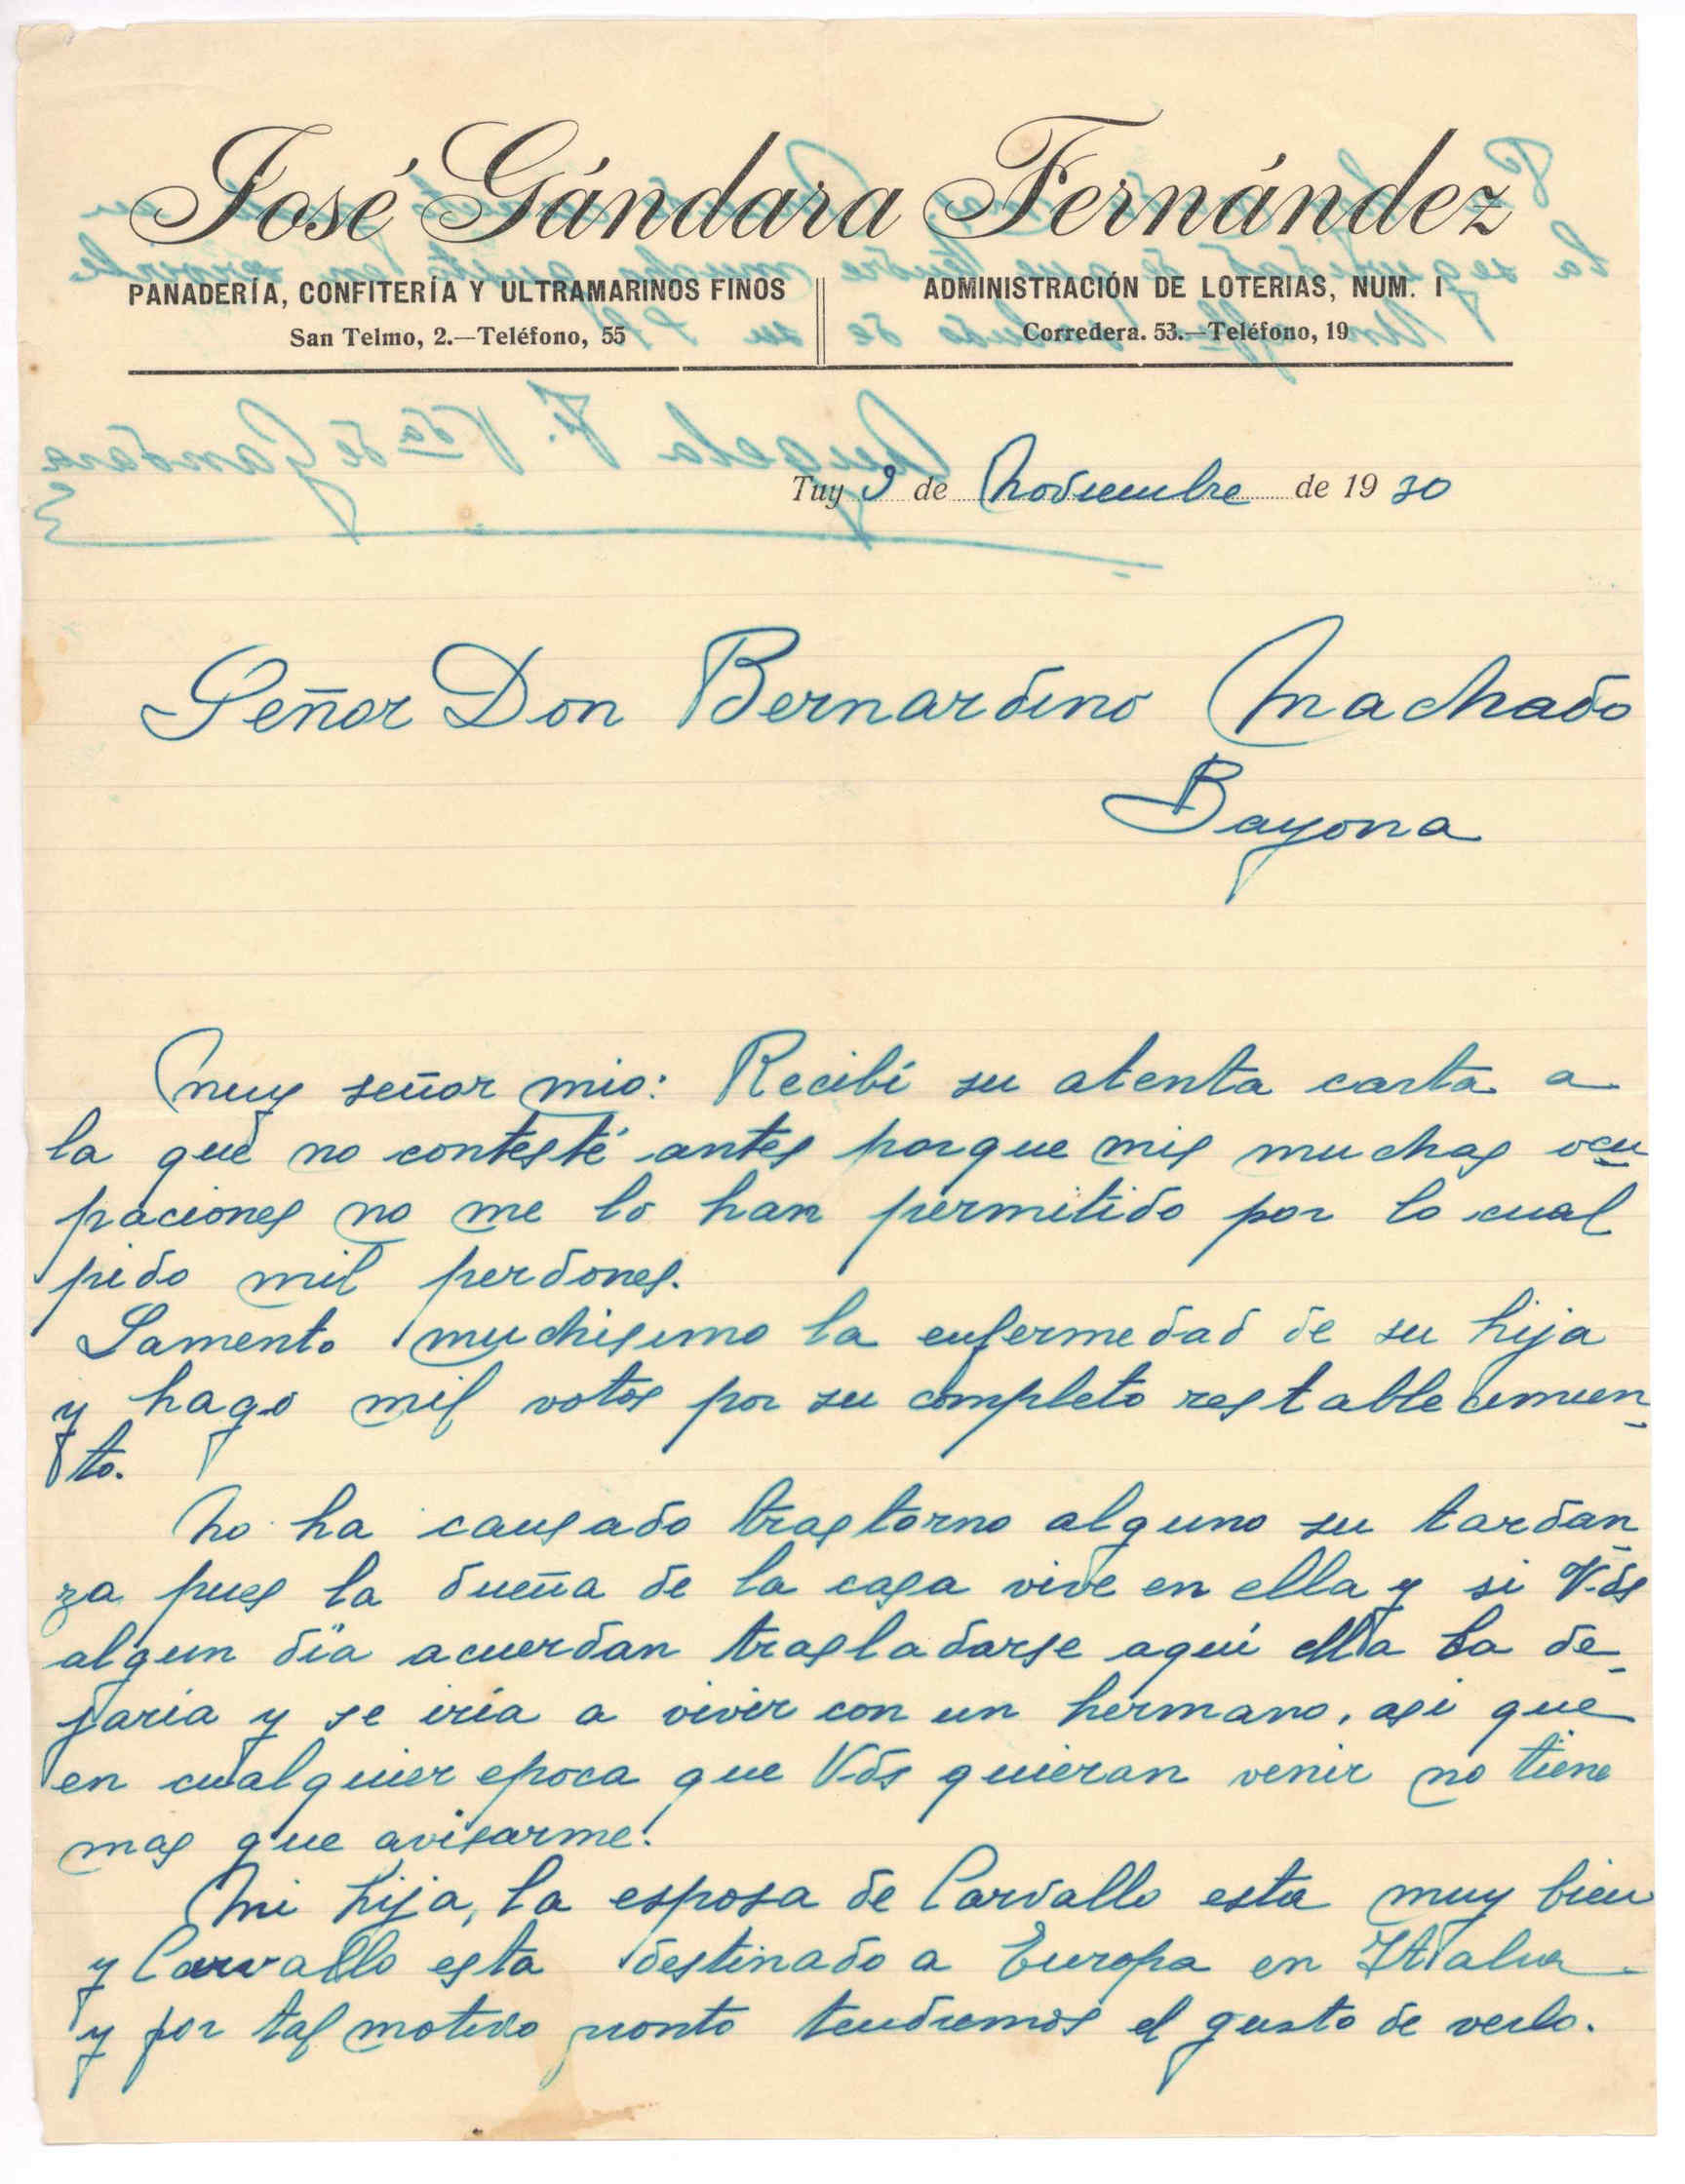 José Gándara Fernández
PANADERÍA, CONFITERÍA Y ULTRAMARINOS FINOS
San Telmo, 2.—Teléfono, 55
ADMINISTRACIÓN DE LOTERIAS, NUM. 1
Corredera. 53.—Teléfono, 19
Tuy 9 de Noviembre de 1930
Señor Don Bernardino Machado
Bayona
Muy señor mio: Recibí su atenta carta a
la que no contesté antes porque mis muchas ocu
paciones no me lo han permitido por lo cual
pido mil perdones.
Lamento muchisimo la enfermedad de su hija
y hago mil votos por su completo restablecimien-
to.
No ha causado trastorno alguno su tardan-
za pues la dueña de la casa vive en ella y si Vds
algun día acuerdan trasladarse aquí ella la de-
jaria y se iría a vivir con un hermano, asi que
en cualquier epoca que Vds quieran venir no tiene
mas que avisarme.
Mi hija, la esposa de Carvallo esta muy bien
y Carvallo esta destinado a Europa en Italia
y por tal motivo pronto tendremos el gusto de verlo.
Angela F. Vda de Gandara